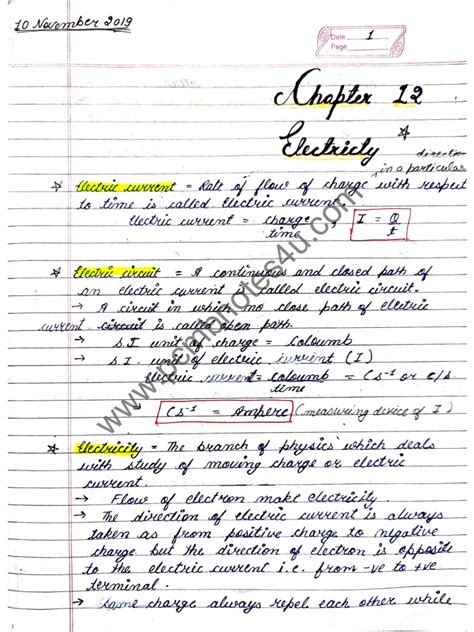 10 November 2019
Date 1
Page
Chapter 12
Electricity
direction
in a particular
Electric current = Rate of flow of charge with respect
to time is called Electric current.
Electric current = charge / time , I = Q / t
Electric circuit = A continuous and closed path of
an electric current is called electric circuit.
→ A circuit in which no close path of electric
current circuit is called open path.
→ S.I unit of charge = Coloumb
→ S.I. unit of electric current (I)
Electric current = coloumb / time = Cs⁻¹ or C/s
→ Cs⁻¹ = Ampere (measuring device of I)
Electricity = The branch of physics which deals
with study of moving charge or electric
current.
→ Flow of electron make electricity.
→ The direction of electric current is always
taken as from positive charge to negative
charge but the direction of electron is opposite
to the electric current i.e. from -ve to +ve
terminal.
→ Same charge always repel each other while
www.pcmbnotes4u.com